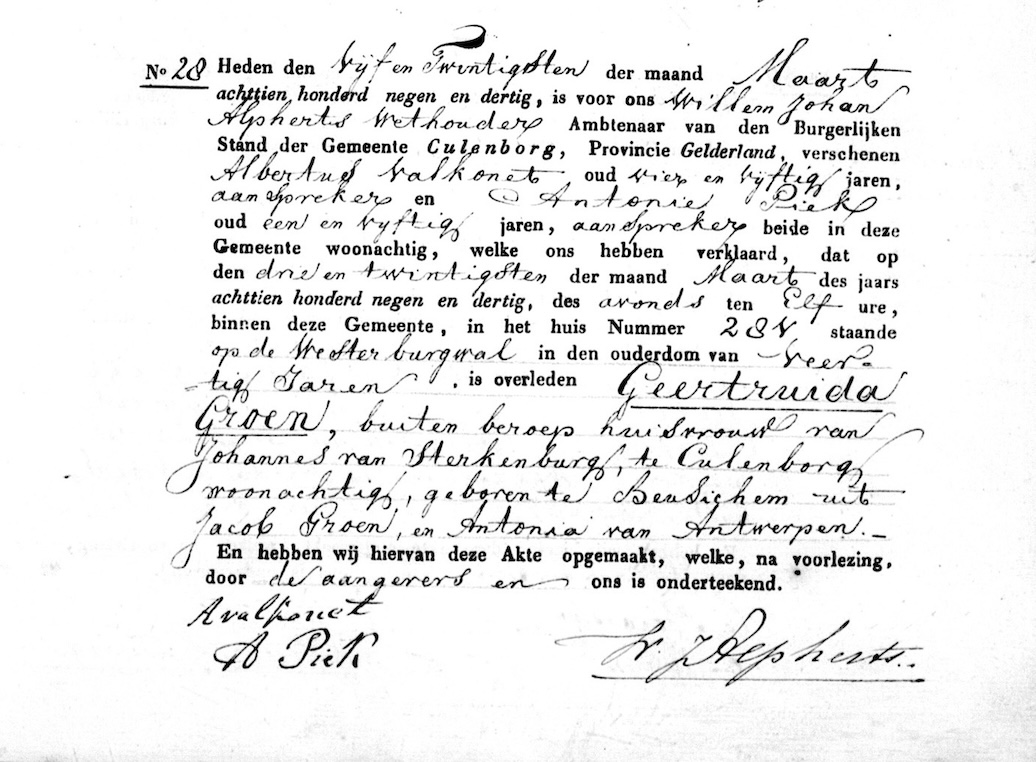 No 28 Heden den Vijf en Twintigsten der maand Maart
achttien honderd negen en dertig, is voor ons Willem Johan
Alpherts Wethouder Ambtenaar van den Burgerlijken
Stand der Gemeente Culenborg, Provincie Gelderland, verschenen
Albertus Valkonet oud vier en vyftig jaren,
aanspreker en Antonie Piek
oud een en vyftig jaren, aanspreker beide in deze
Gemeente woonachtig, welke ons hebben verklaard, dat op
den drie en twintigsten der maand Maart des jaars
achttien honderd negen en dertig, des avonds ten Elf ure,
binnen deze Gemeente, in het huis Nummer 284 staande
op de Westerburgwal in den ouderdom van Veer-
tig Jaren, is overleden Geertruida
Groen, buiten beroep huisvrouw van
Johannes van Sterkenburg, te Culenborg
woonachtig, geboren te Beusichem uit
Jacob Groen, en Antonia van Antwerpen.—
En hebben wij hiervan deze Akte opgemaakt, welke, na voorlezing,
door de aangevers en ons is onderteekend.
A valkonet
A Piek
W. J Alpherts.